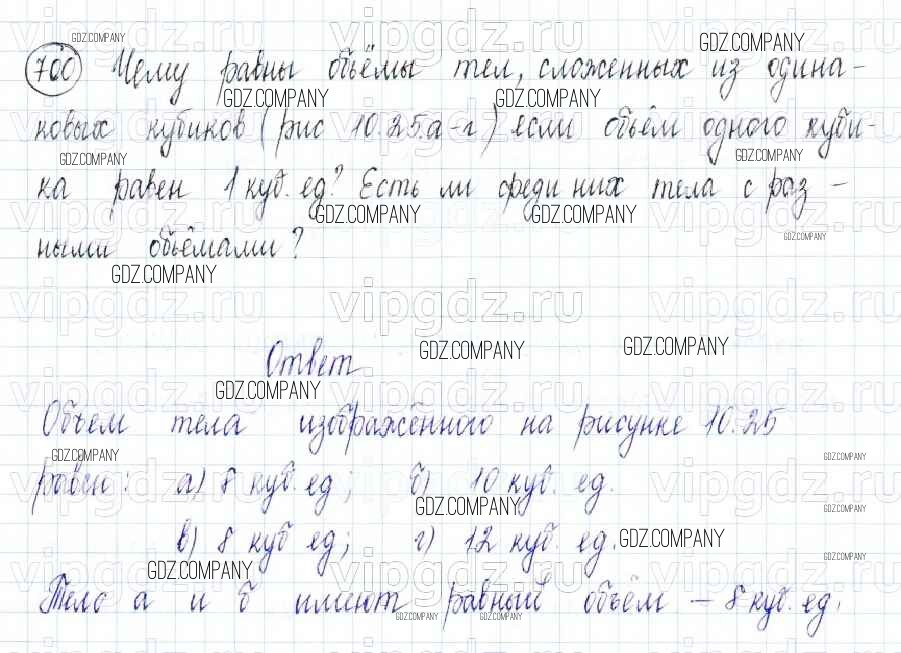 700 Чему равны объёмы тел, сложенных из одина-
ковых кубиков (рис 10.25.а-г) если объём одного куби-
ка равен 1 куб. ед? Есть ли среди них тела с раз-
ными объёмами?
Ответ
Объем тела изображённого на рисунке 10.25
равен: а) 8 куб. ед; б) 10 куб. ед.
в) 8 куб ед; г) 12 куб. ед.
Тело а и б имеют равный объём - 8 куб. ед.
GDZ.COMPANY
vipgdz.ru